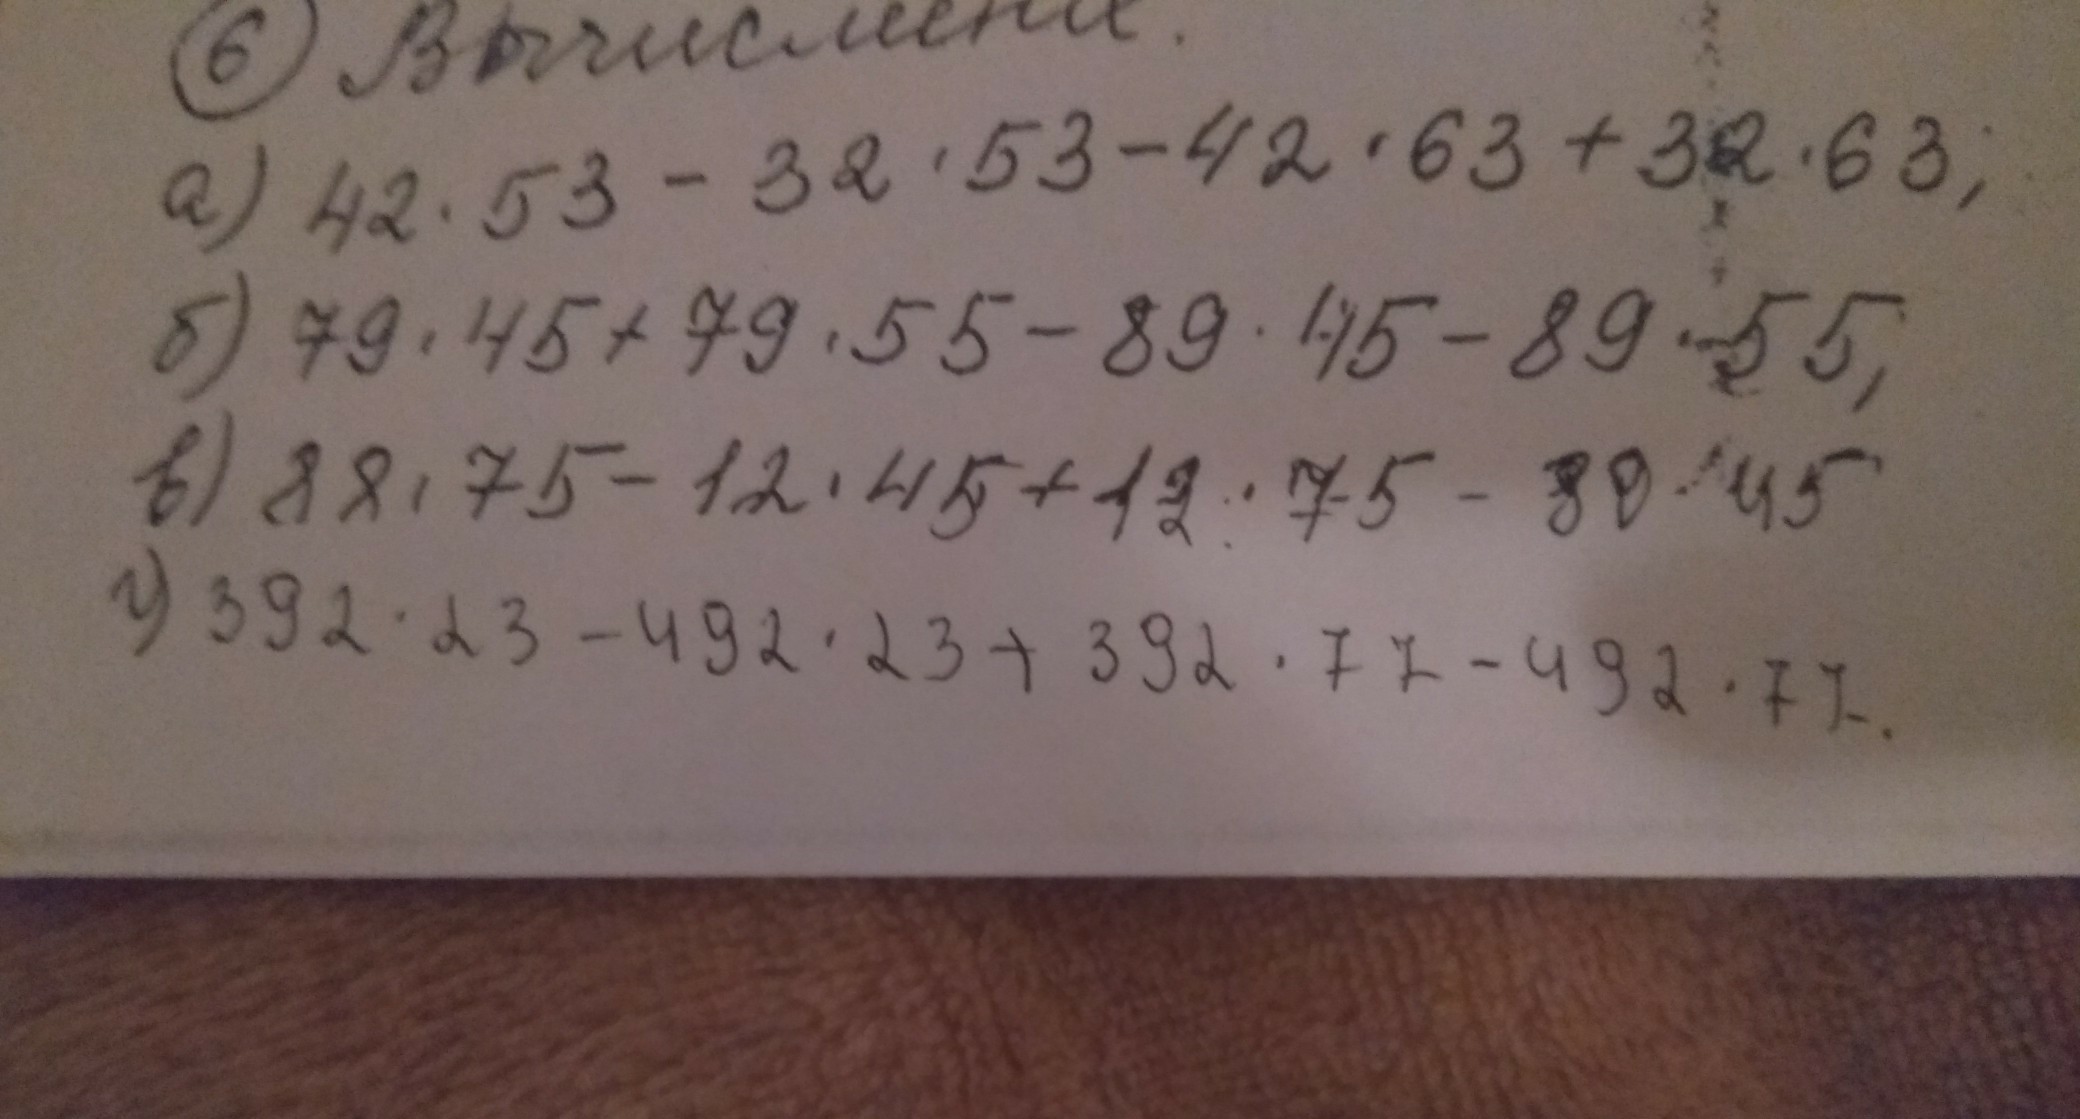 6 Вычислени.
а) 42·53 - 32·53 - 42·63 + 32·63;
б) 79·45 + 79·55 - 89·45 - 89·55,
в) 88·75 - 12·45 + 12·75 - 88·45
г) 392·23 - 492·23 + 392·77 - 492·77.